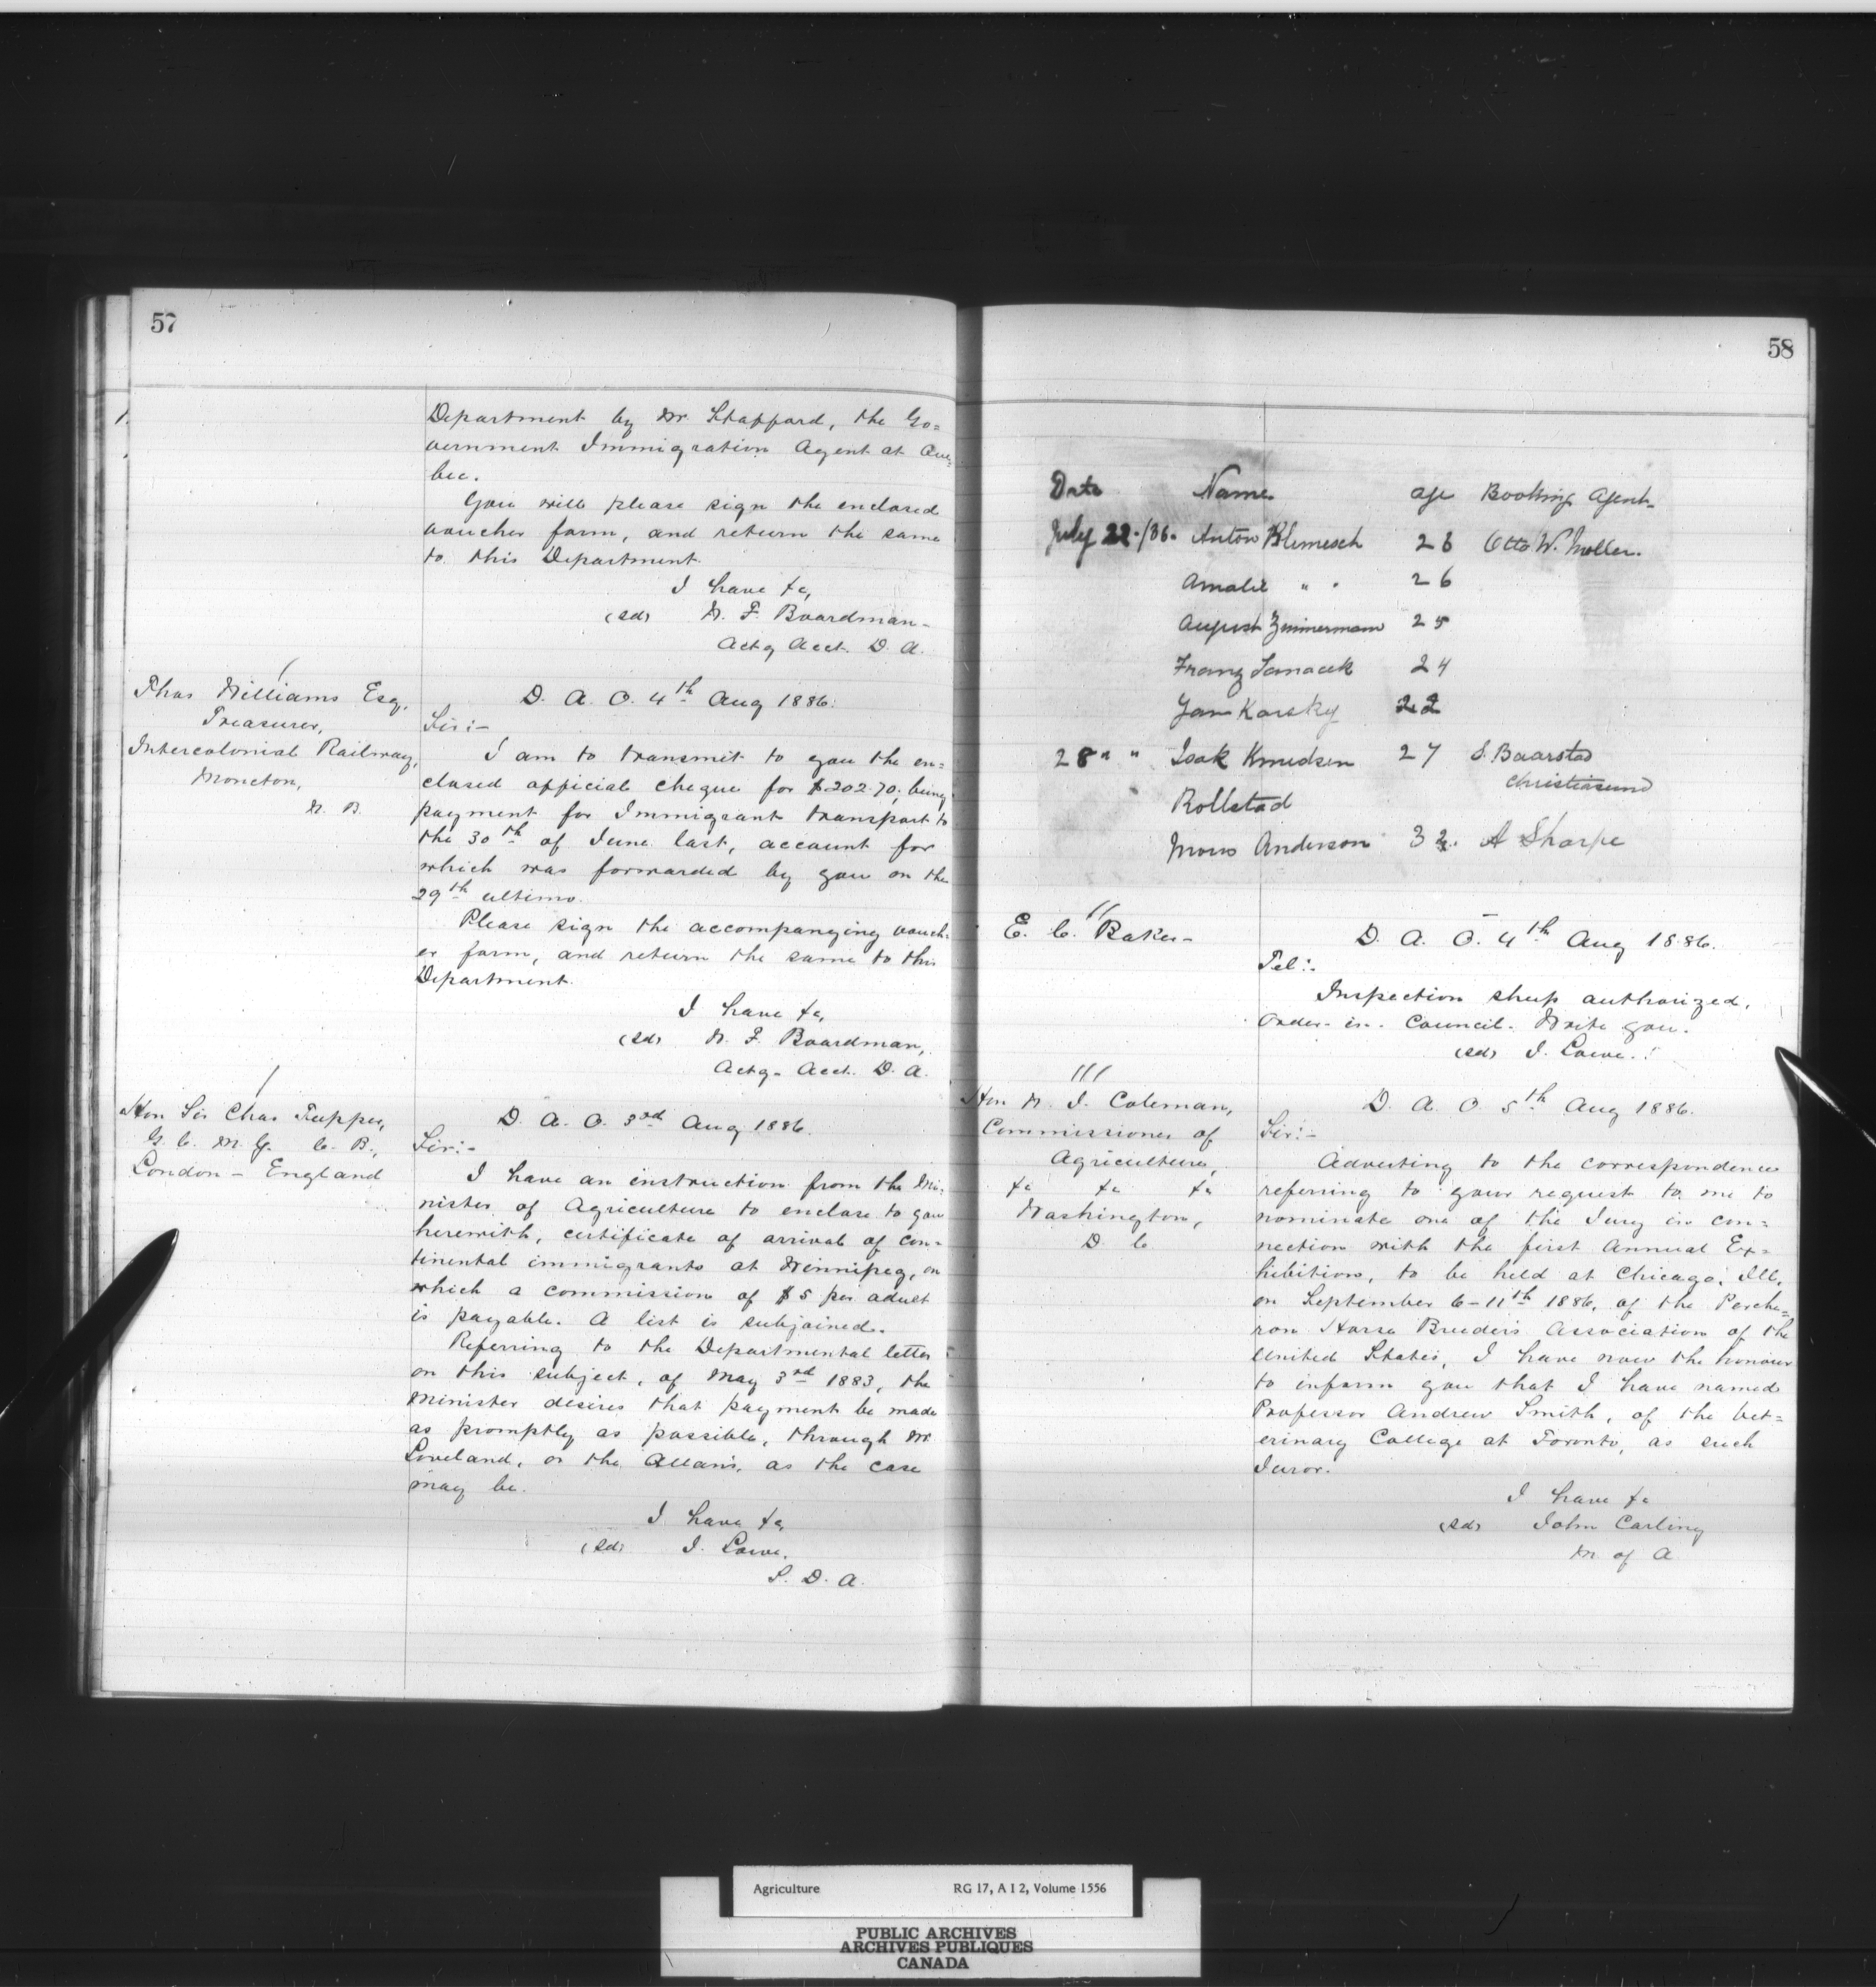 57
Department by Mr. Stafford, the Go=
vernment Immigration Agent at Que=
bec.
You will please sign the enclosed
voucher form, and return the same
to this Department.
I have &c,
(sd) W. F. Boardman-
Actg Acct. D. A.
Thos Williams Esq,
Treasurer,
Intercolonial Railway,
Moncton,
N. B.
D. A. O. 4th Aug 1886.
Sir:-
I am to transmit to you the en=
closed official cheque for $202.70, being
payment for Immigrant transport to
the 30th of June last, account for
which was forwarded by you on the
29th ultimo.
Please sign the accompanying vouch=
er form, and return the same to this
Department.
I have &c,
(sd) W. F. Boardman,
Actg- Acct. D. A.
Hon Sir Chas Tupper,
G. C. M. G. C. B.,
London - England
D. A. O. 3rd Aug 1886.
Sir:-
I have an instruction from the Mi=
nister of Agriculture to enclose to you
herewith, certificate of arrival of con=
tinental immigrants at Winnipeg, on
which a commission of $5 per adult
is payable. A list is subjoined.
Referring to the Departmental letter
on this subject, of May 3rd 1883, the
Minister desires that payment be made
as promptly as possible, through Mr
Loveland, or the Allans, as the case
may be.
I have &c,
(sd) J. Lowe,
S. D. A.
58
Date Name age Booking Agent-
July 22./86. Anton Klimesch 28 Otto W. Moller.
Amalie " " 26
August Zimmermann 25
Franz 24
Jan Karsky 22
28 " " Isak Knudsen 27 S. Baarstad
Christiasund
Rollstad
Mons Anderson 32. A Sharpe
E. C. Baker-
D. A. O. 4th Aug 1886.
Tel:-
Inspection sheep authorized.
Order-in-Council. Write you.
(sd) J. Lowe.
Hon N. J. Coleman,
Commissioner of
Agriculture,
&c &c &c
Washington,
D. C.
D. A. O. 5th Aug 1886.
Sir:-
Adverting to the correspondence
referring to your request to me to
nominate one of the Jury in con=
nection with the first Annual Ex=
hibition, to be held at Chicago, Ill,
on September 6-11th 1886, of the Perche=
ron Horse Breeders Association of the
United States, I have now the honour
to inform you that I have named
Professor Andrew Smith, of the Vet=
erinary College at Toronto, as such
Juror.
I have &c
(sd) John Carling
M of A
Agriculture RG 17, A I 2, Volume 1556
PUBLIC ARCHIVES
ARCHIVES PUBLIQUES
CANADA